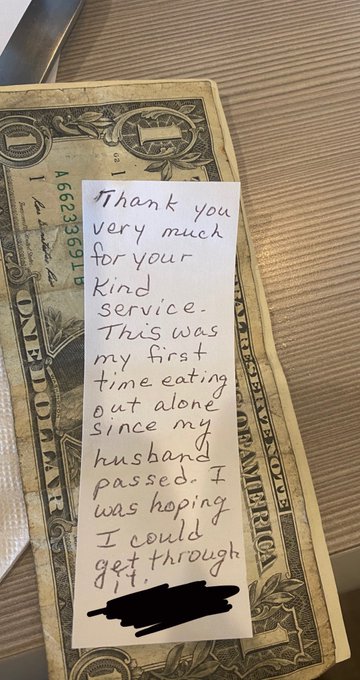 Thank you
very much
for your
kind
service.
This was
my first
time eating
out alone
since my
husband
passed. I
was hoping
I could
get through
it.
ONE DOLLAR
RESERVE NOTE
OF AMERICA
1
1
1